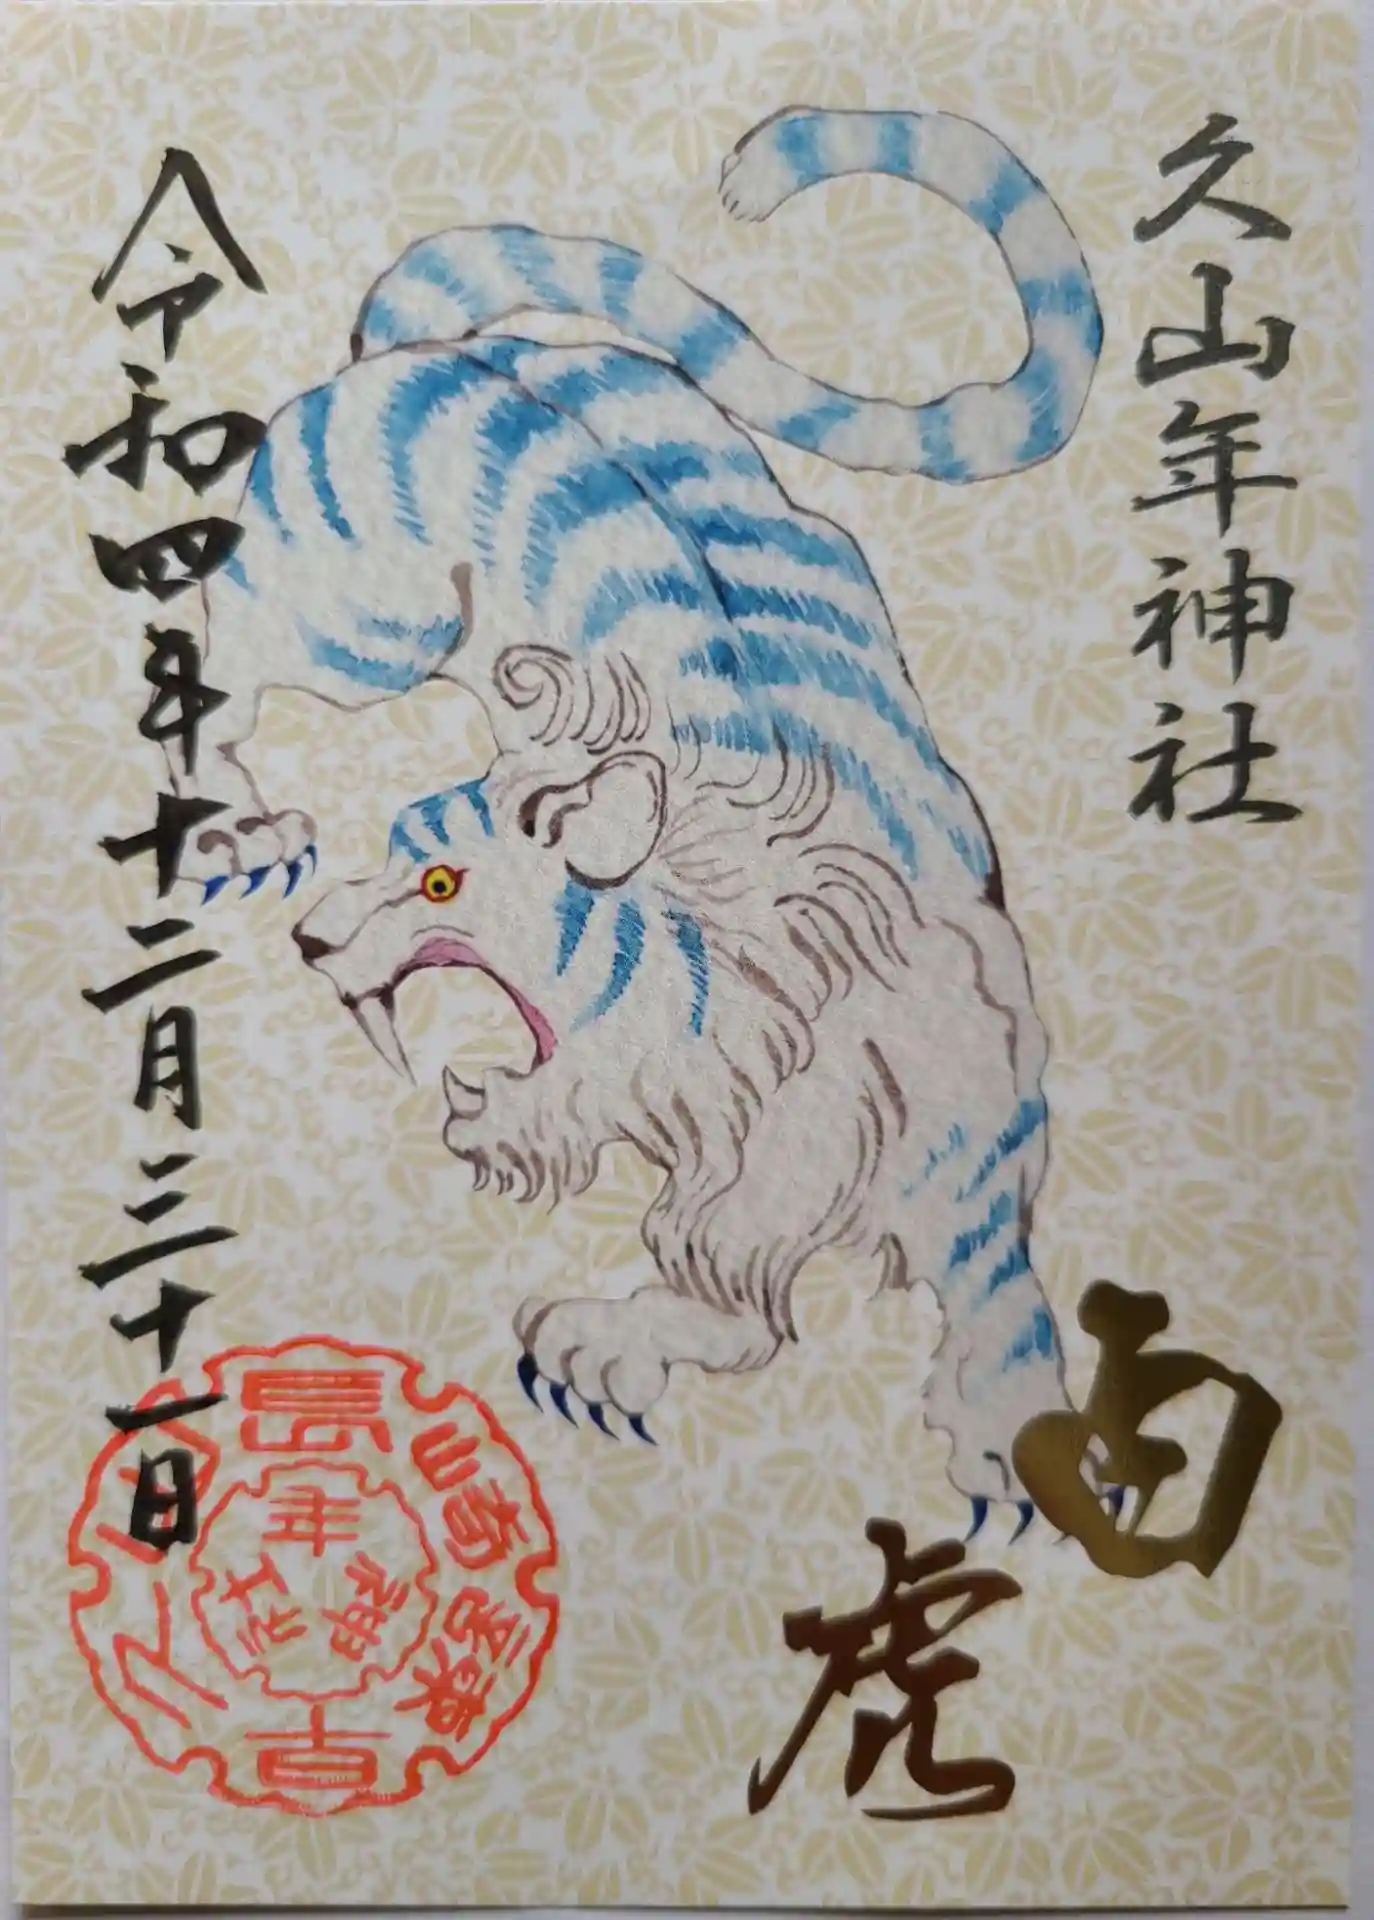 久山年神社
白虎
令和四年十二月三十一日
年神社